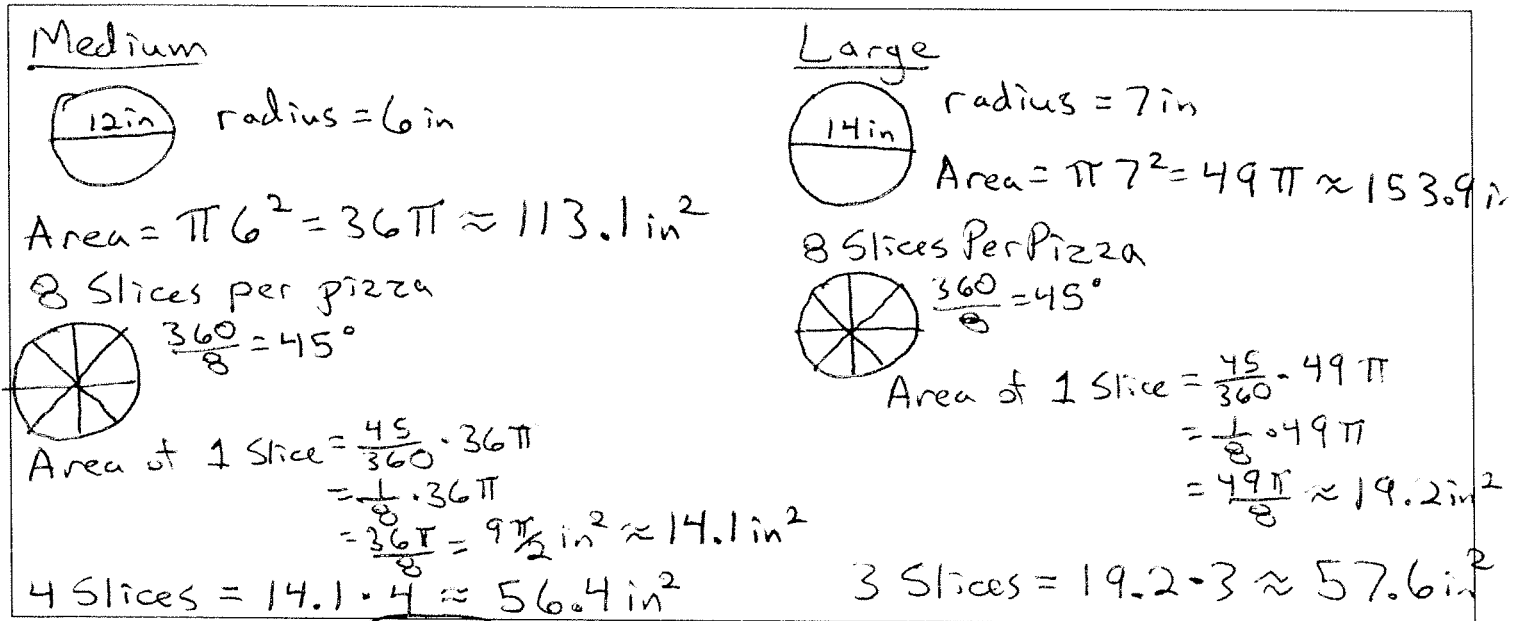 Medium
12in radius = 6 in
Area = π6² = 36π ≈ 113.1 in²
8 Slices per pizza
360/8 = 45°
Area of 1 Slice = 45/360 · 36π
= 1/8 · 36π
= 36π/8 = 9π/2 in² ≈ 14.1 in²
4 Slices = 14.1 · 4 ≈ 56.4 in²
Large
14in radius = 7 in
Area = π7² = 49π ≈ 153.9 i
8 Slices Per Pizza
360/8 = 45°
Area of 1 Slice = 45/360 · 49π
= 1/8 · 49π
= 49π/8 ≈ 19.2 in²
3 Slices = 19.2 · 3 ≈ 57.6 in²